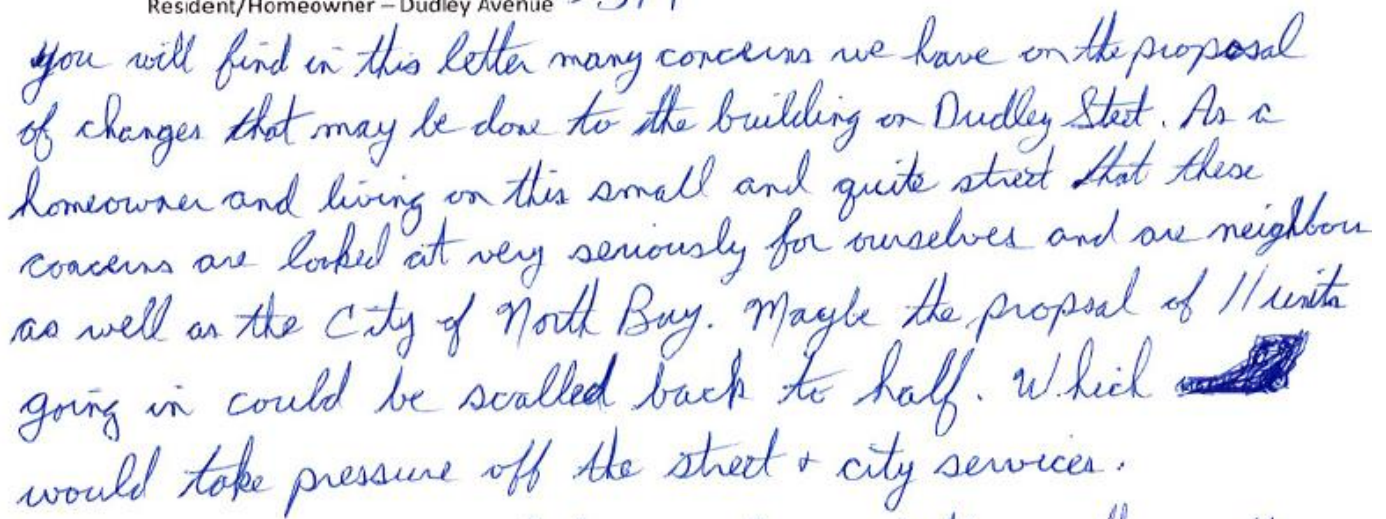 Resident/Homeowner – Dudley Avenue
you will find in this letter many concerns we have on the proposal
of changes that may be done to the building on Dudley Steet. As a
homeowner and living on this small and quite street that these
concerns are looked at very seriously for ourselves and are neighbour
as well as the City of North Bay. Maybe the propsal of 11 units
going in could be scalled back to half. Which
would take pressure off the street + city services.